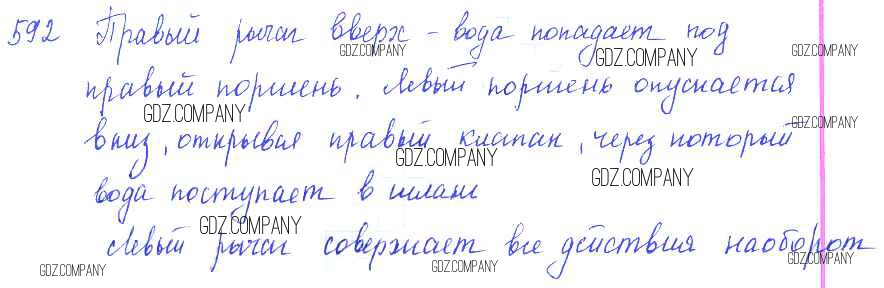 592 Правый рычаг вверх - вода попадает под
GDZ.COMPANY GDZ.COMPANY GDZ.COMPANY
правый поршень. Левый поршень опускается
GDZ.COMPANY GDZ.COMPANY
вниз, открывая правый клапан, через который
GDZ.COMPANY GDZ.COMPANY
вода поступает в шланг
GDZ.COMPANY
Левый рычаг совершает все действия наоборот
GDZ.COMPANY GDZ.COMPANY GDZ.COMPANY